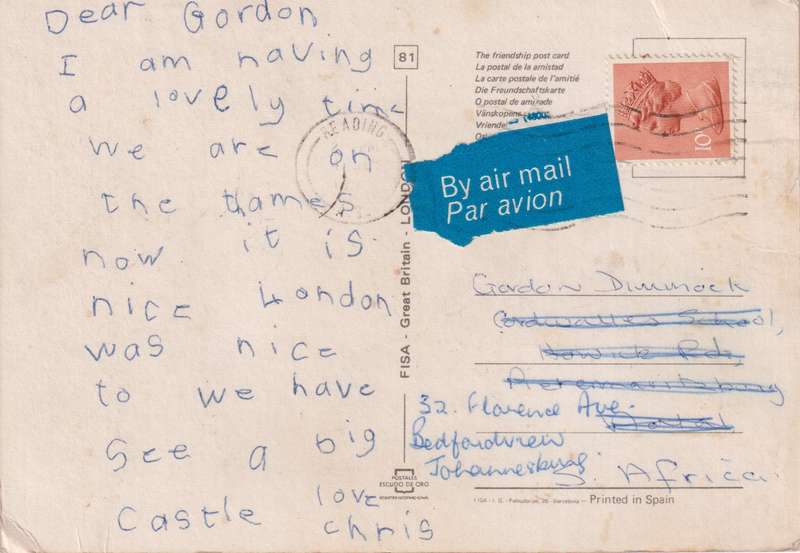 Dear Gordon
I am having
a lovely time
we are on
the thames
now it is
nice London
was nice
to we have
see a big
Castle love
chris
81
FISA - Great Britain - LONDON
The friendship post card
La postal de la amistad
La carte postale de l'amitié
Die Freundschaftskarte
O postal de amizade
Vänskapens
READING
By air mail
Par avion
10
Gordon Dimmock
Cordwalles School,
Howick Rd,
Pietermaritzburg
Natal
32. Florence Ave.
Bedfordview
Johannesburg
S. Africa
POSTALES
ESCUDO DE ORO
Printed in Spain